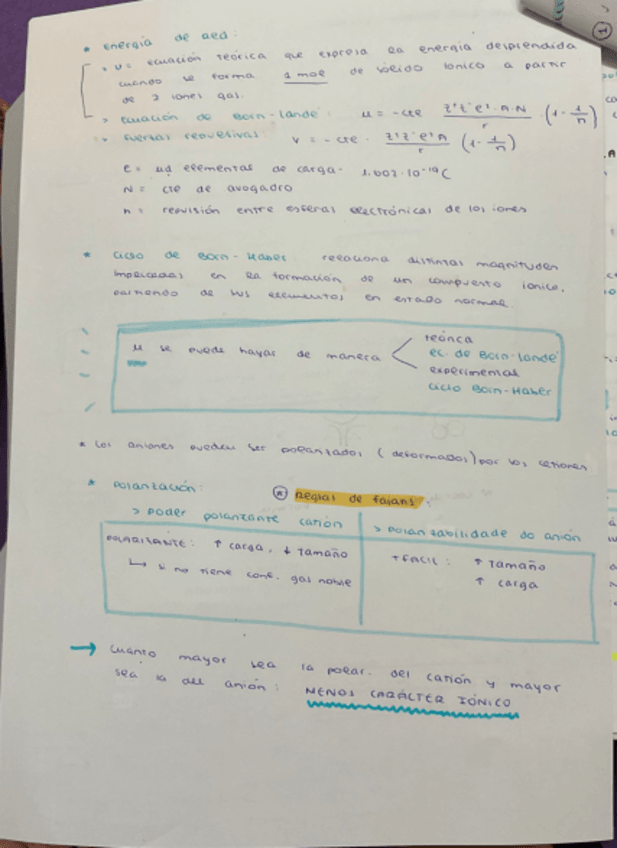 * energía de red:
> U= ecuación teórica que expresa la energía desprendida
cuando se forma 1 mol de sólido iónico a partir
de 2 iones gas.
> ecuación de Born-Landé: u = -cte z⁺z⁻e²·A·N / r · (1 - 1/n)
> fuerzas repulsivas: v = -cte · z⁺z⁻e²A / r (1 - 1/n)
e = ud elemental de carga - 1.602·10⁻¹⁹C
N = cte de avogadro
n = repulsión entre esferas electrónicas de los iones
* Ciclo de Born-Haber: relaciona distintas magnitudes
implicadas en la formación de un compuesto iónico,
partiendo de sus elementos en estado normal.
u se puede hayar de manera < teórica
ec. de Born-Landé
experimental
ciclo Born-Haber
* Los aniones pueden ser polarizados (deformados) por los cationes
* polarización:
* Reglas de Fajans:
> poder polarizante catión
> polarizabilidade do anión
POLARIZANTE: ↑ carga, ↓ tamaño
↳ si no tiene conf. gas noble
+FACIL: ↑ Tamaño
↑ carga
→ Cuanto mayor sea la polar. del catión y mayor
sea la del anión: MENOS CARÁCTER IÓNICO